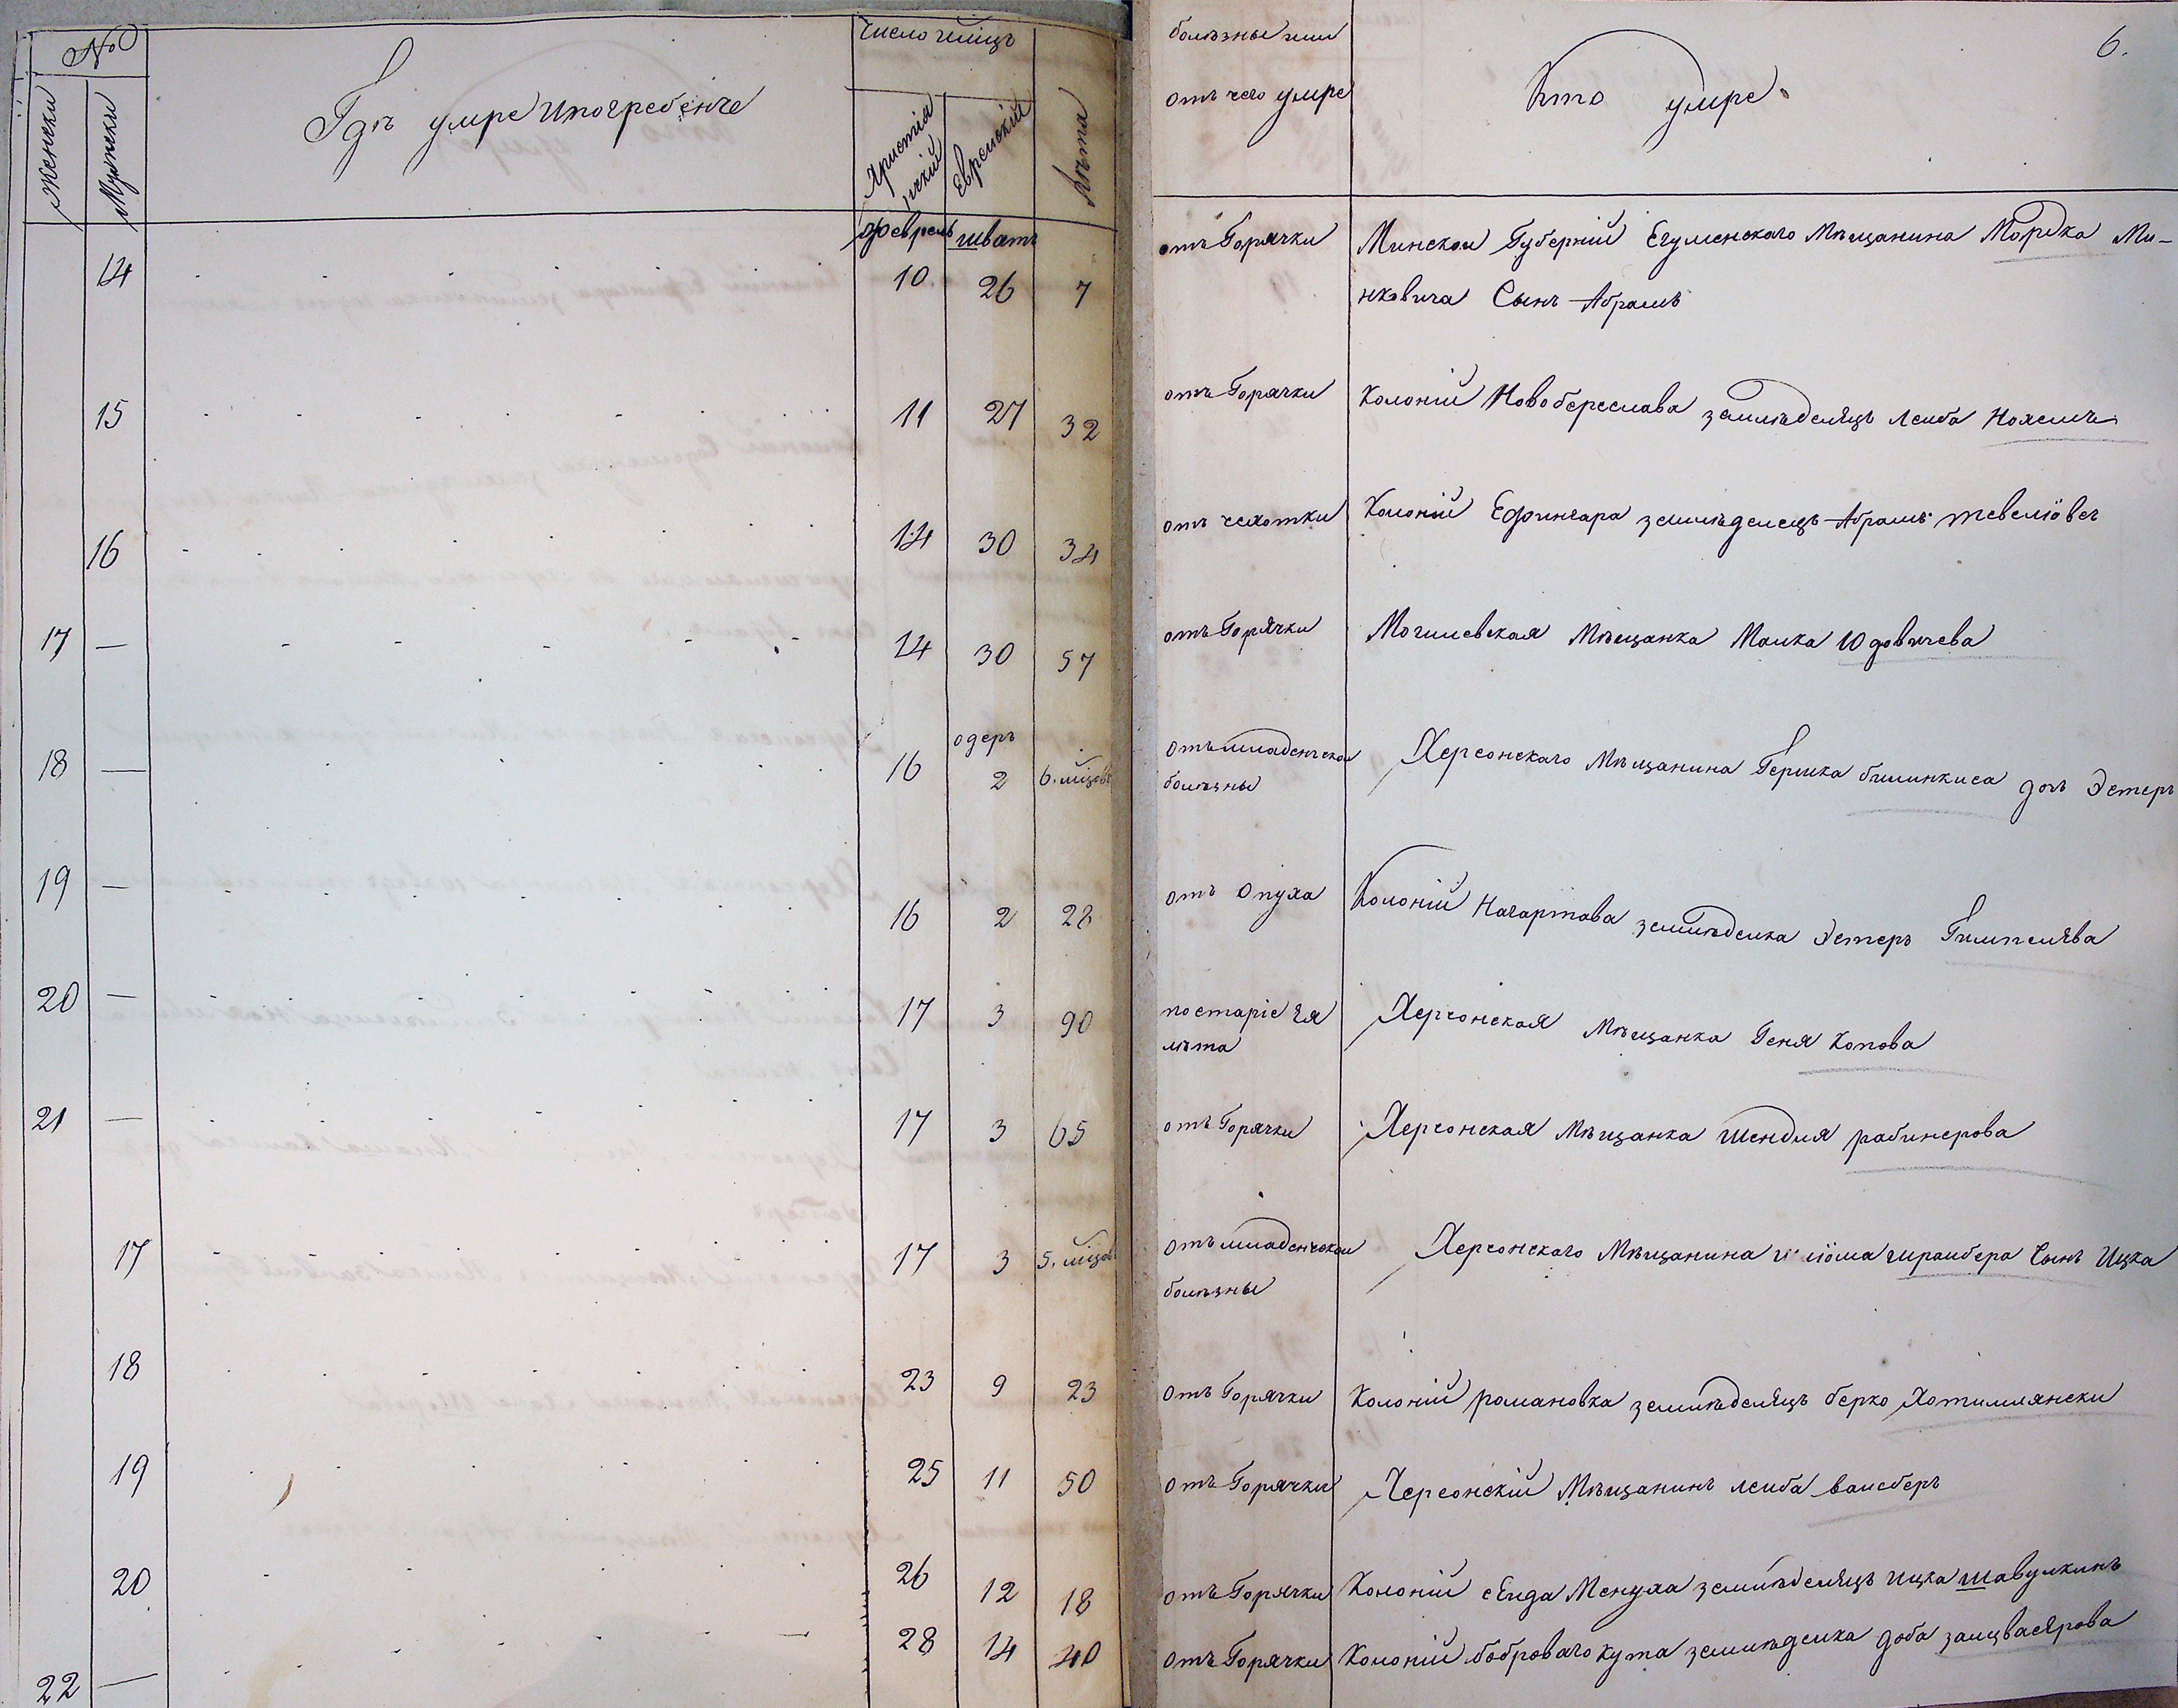 №
Женски
Мужески
Гдѣ умре и погребенъ
Число мѣсяцъ
Христіанскій
Еврейскій
Лѣта
болѣзны или
отъ чего умре
Кто умре.
6.
февраль шватъ
14 10 26 7 отъ Горячки Минской Губерніи Егуменскаго Мѣщанина Мордка Ми-
нковича Сынъ Абрамъ
15 11 27 32 отъ Горячки Колоній Новобереслава земледелѣцъ Лейба
16 14 30 34 отъ чехотки Колоній Ефингара земледелецъ Абрамъ
17 — 14 30 57 отъ Горячки Могилевская Мѣщанка Малка Юдовичева
одеръ
18 — 16 2 6. мѣцов отъ младенческой Херсонскаго Мѣщанина Гершка билинкиса дочь Эстеръ
болѣзны
19 — 16 2 28 отъ Опуха Колоній Нагартава земледелка Эстеръ Гимпелѣва
20 — 17 3 90 по старіе Ея Херсонская Мѣщанка Геня Копова
лѣта
21 — 17 3 65 отъ Горячки Херсонская Мѣщанка Шендля рабинерова
17 17 3 5. мѣцов отъ младенческой Херсонскаго Мѣщанина Сынъ Ицка
болѣзны
18 23 9 23 отъ Горячки Колоній романовка земледелѣцъ берко Хотимлянски
19 25 11 50 отъ Горячки Херсонскій Мѣщанинъ лейба вайсберъ
20 26 12 18 отъ Горячки Колоній сѣйда Менуха земледелѣцъ ицка шавулкинъ
22 — 28 14 40 отъ Горячки Колоній бобровагокута земледелка доба